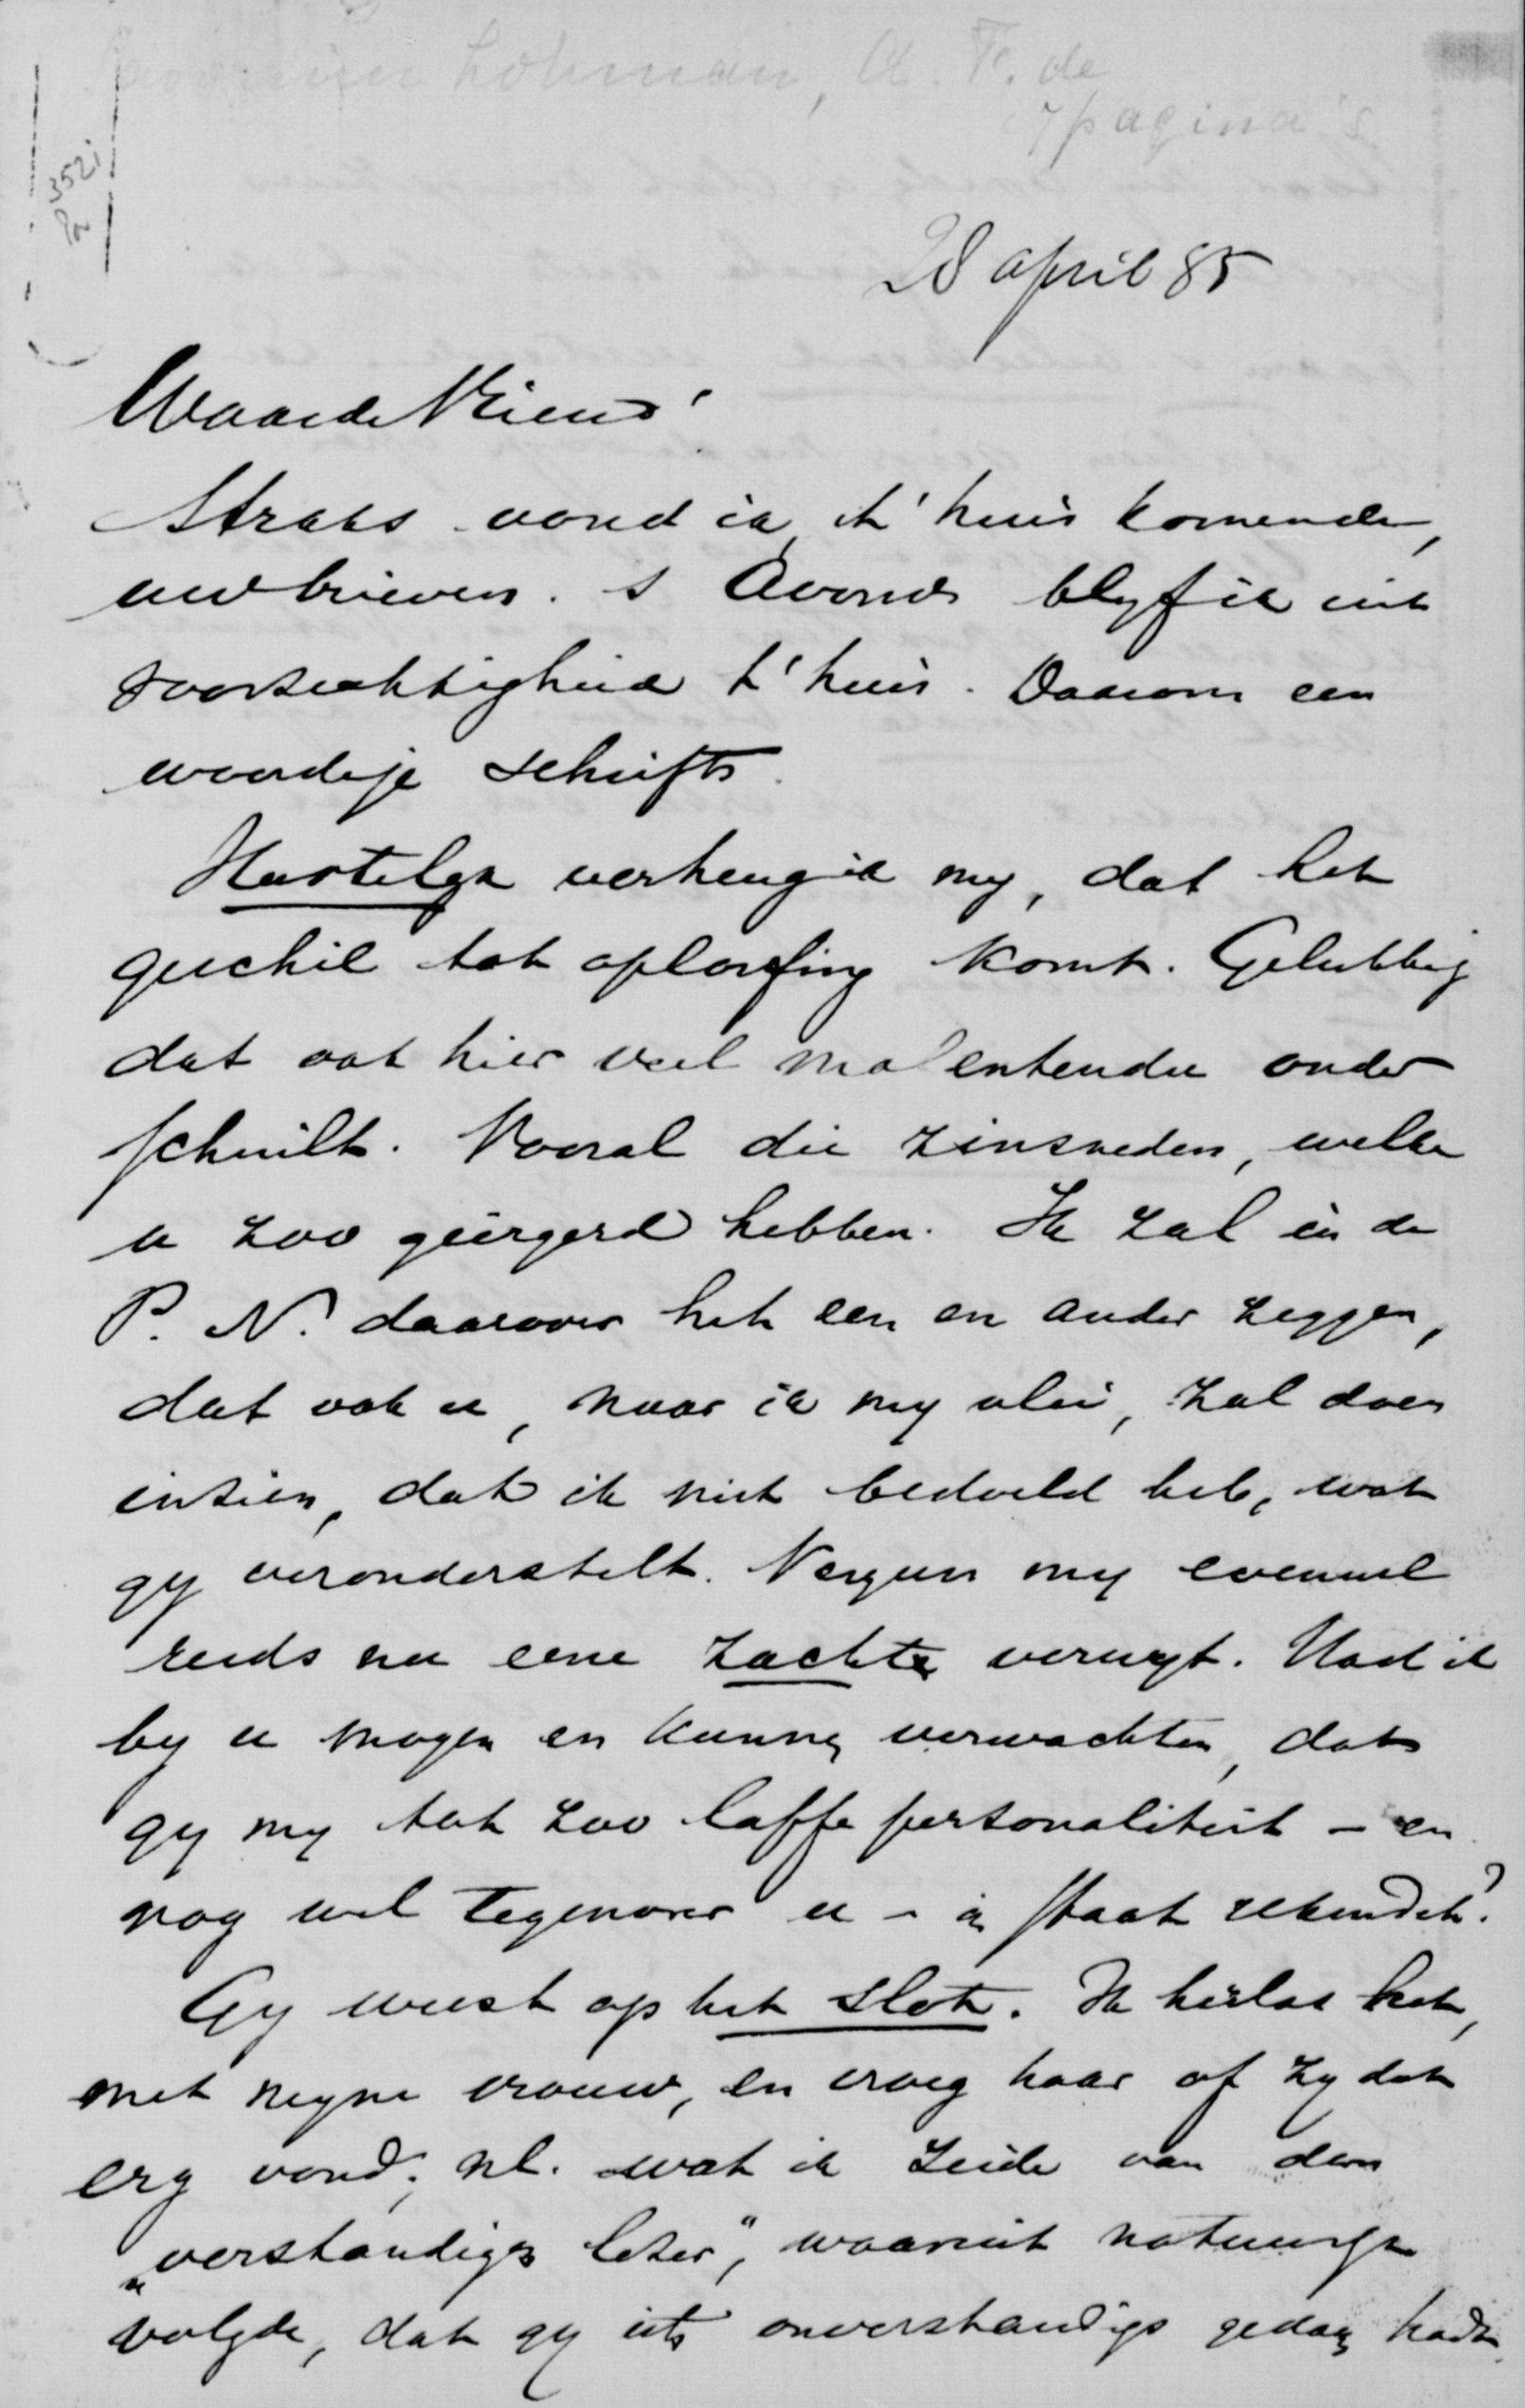 Lohman, A. F. de
7 pagina's
352i
28 april 85
Waarde Vriend!
Straks vond ik, t'huis komende,
uw brieven. s Avonds blyf ik uit
voorzichtigheid t'huis. Daarom een
woordeje schrifts.
Hartelyk verheug ik my, dat het
geschil tot oplossing komt. Gelukkig
dat ook hier veel malentendu onder
schuilt. Vooral die zinsneden, welke
u zoo geërgerd hebben. Ik zal in de
P. N. daarover het een en ander zeggen,
dat ook u, naar ik my vlei, zal doen
inzien, dat ik niet bedoeld heb, wat
gy veronderstelt. Vergun my evenwel
reeds nu eene zachte verwyt. Had ik
by u mogen en kunnen verwachten, dat
gy my tot zoo laffe personaliteit – en
nog wel tegenover u – in staat rekendet?
Gy weest op het slot. Ik herlas het,
met myne vrouw, en vroeg haar of zy dat
erg vond; nl. wat ik zeide van den
„verstandigen lezer", waaruit natuurlyk
volgde, dat gy iets onverstandigs gedaan hadt.